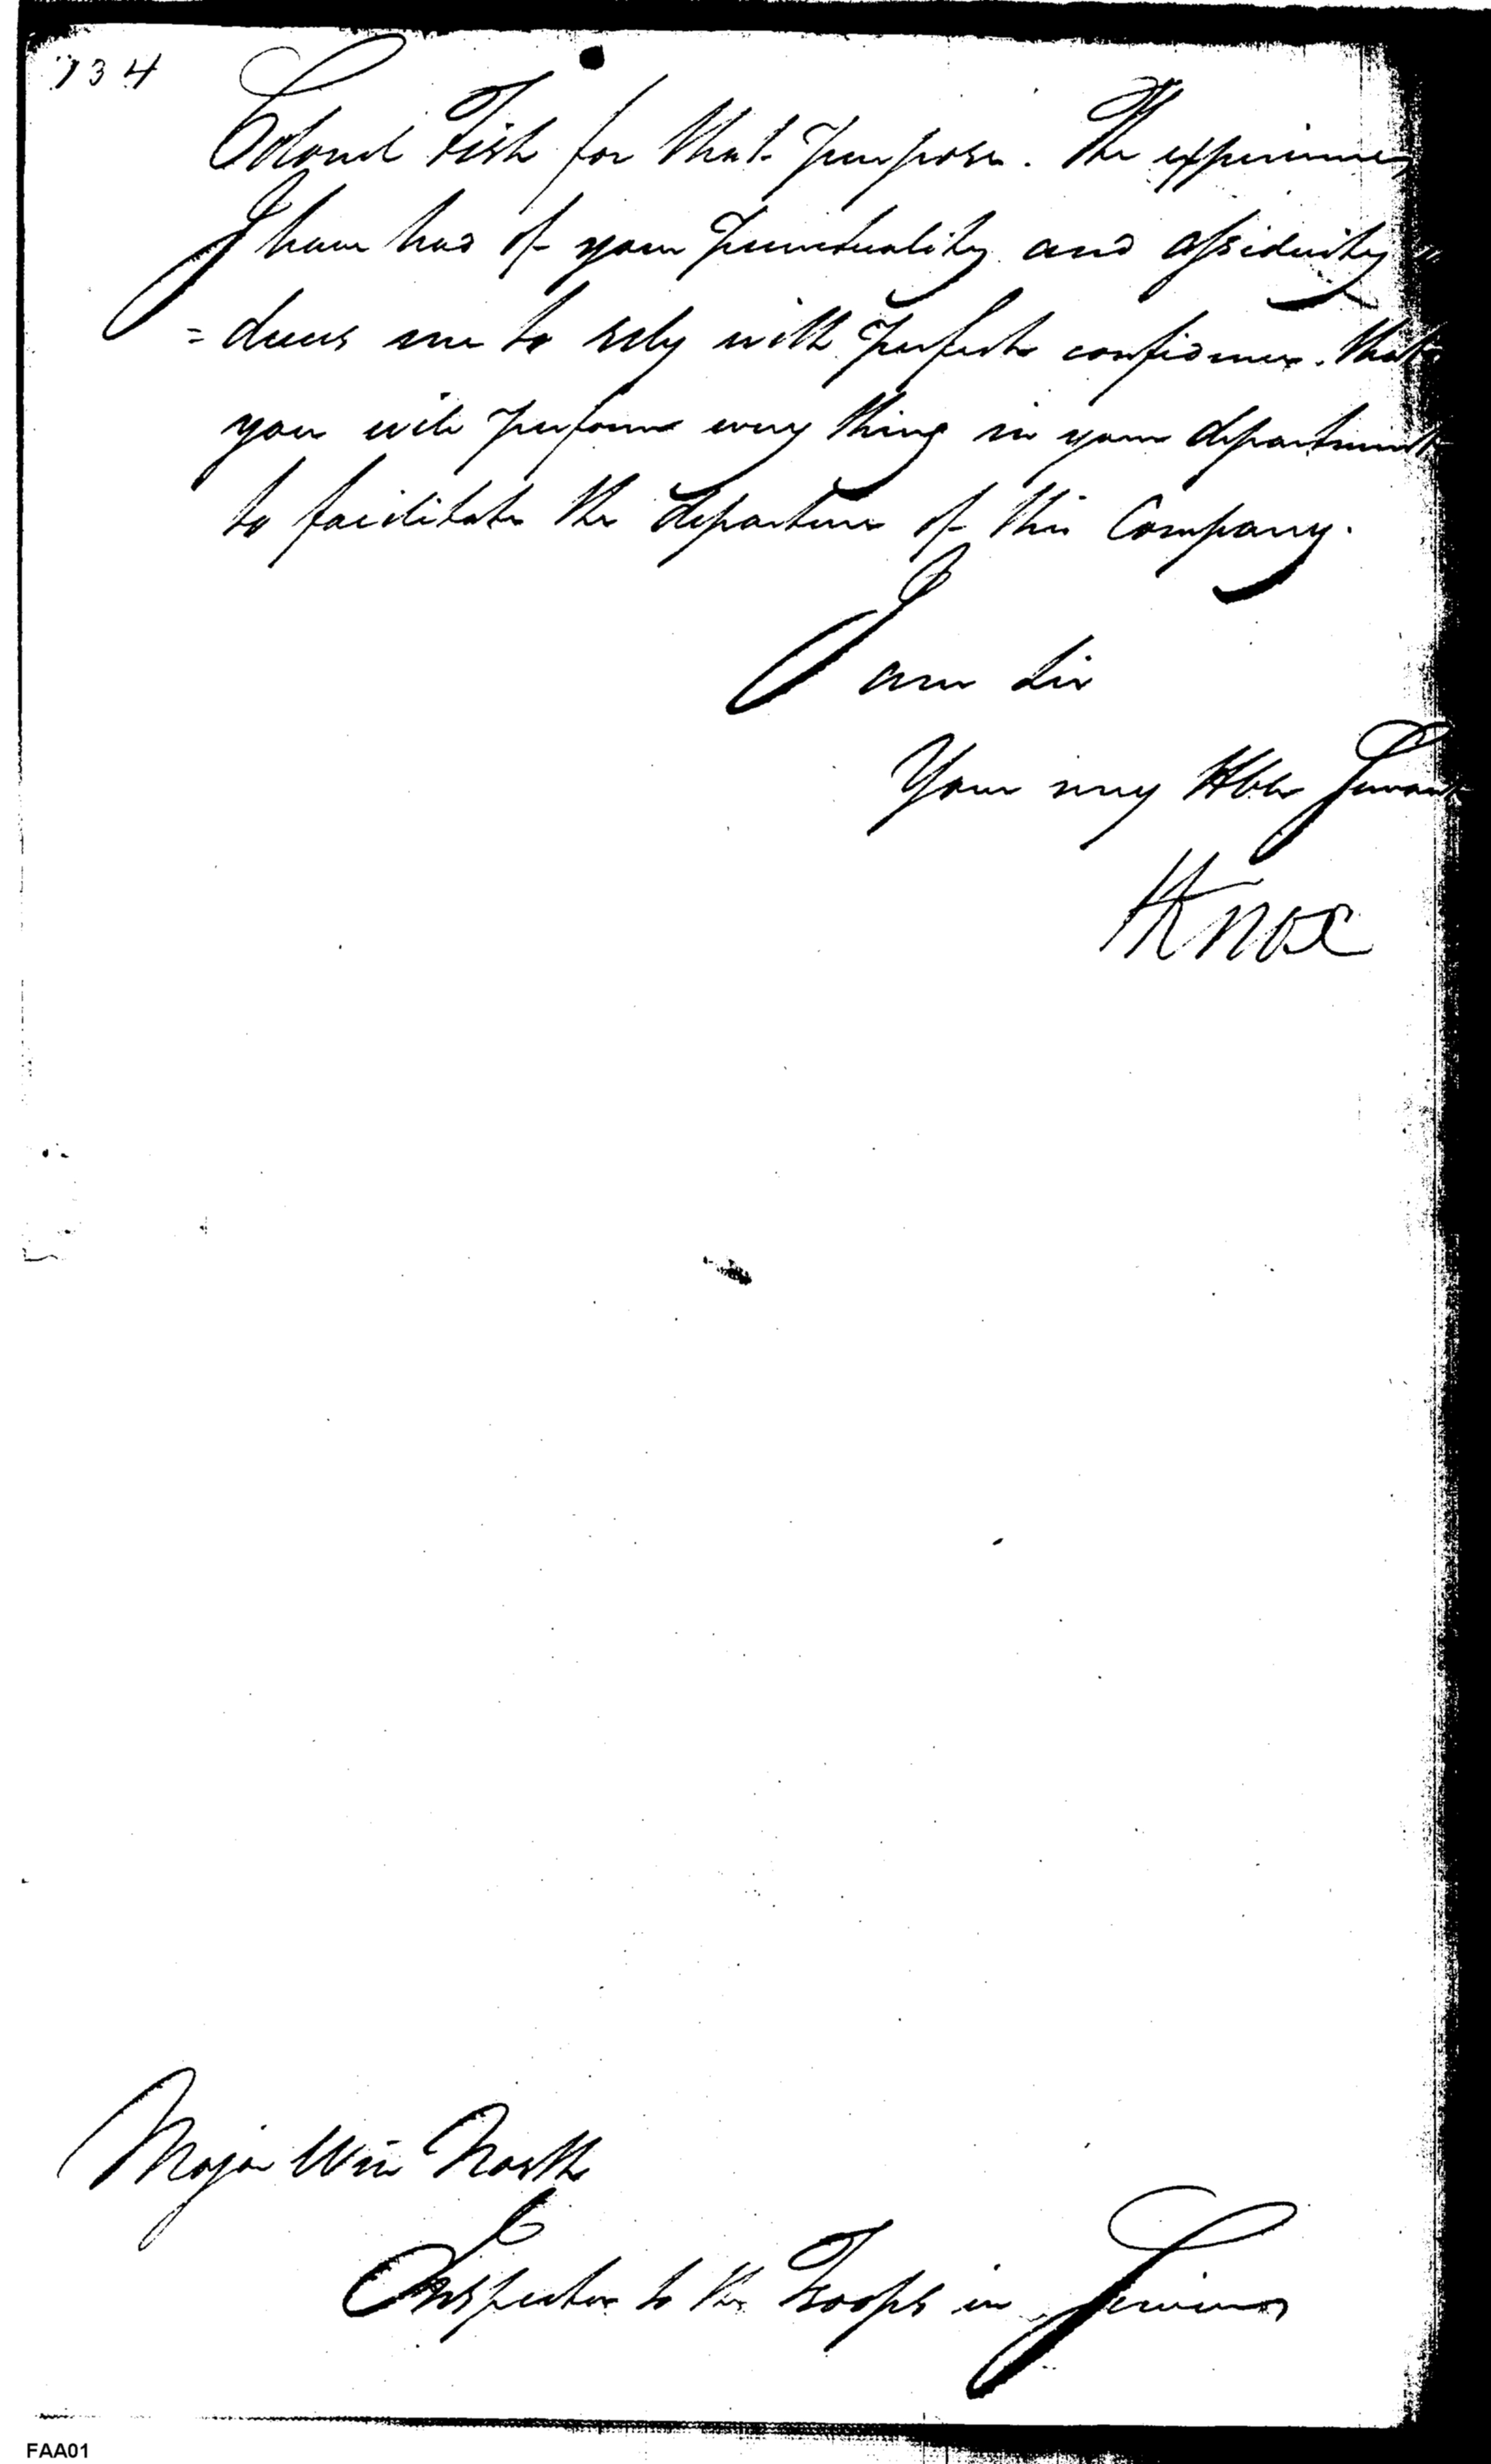 734
Colonel Fish for that purpose. The experience
I have had of your punctuality and assiduity
= duces me to rely with perfect confidence. that
you will perform every thing in your department
to facilitate the departure of this Company.
I am Sir
Your very Hble Servant
HKnox
Major Wm North
Inspector to the Troops in Service
FAA01